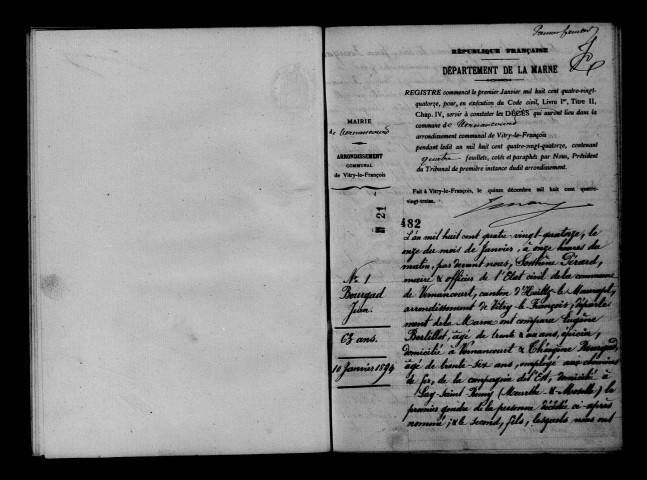 RÉPUBLIQUE FRANÇAISE
DÉPARTEMENT DE LA MARNE
REGISTRE commencé le premier Janvier mil huit cent quatre-vingt-
quatorze, pour, en exécution du Code civil, Livre Ier, Titre II,
Chap. IV, servir à constater les DÉCÈS qui auront lieu dans la
commune de Vernancourt
arrondissement communal de Vitry-le-François
pendant ledit an mil huit cent quatre-vingt-quatorze, contenant
quatre feuillets, cotés et paraphés par Nous, Président
du Tribunal de première instance dudit arrondissement.
Fait à Vitry-le-François, le quinze décembre mil huit cent quatre-
vingt-treize.
MAIRIE
de Vernancourt
ARRONDISSEMENT
COMMUNAL
de Vitry-le-François
21
482
No 1
Bourgad
Jean.
63 ans.
10 Janvier 1894
L'an mil huit cent quatre-vingt-quatorze, le
onze du mois de Janvier, à onze heures du
matin, par devant nous, Sosthène Pérard,
maire & officier de l'Etat civil de la commune
de Vernancourt, canton d'Heiltz-le-Maurupt,
arrondissement de Vitry-le-François, départe
ment de la Marne ont comparu Eugène
Bertillot, âgé de trente & un ans, épicier,
domicilié à Vernancourt &
âgé de trente-six ans, employé aux chemins
de fer, de la compagnie de l'Est, domicilié à
Lay-Saint-Remy (Meurthe-&-Moselle) le
premier gendre de la personne décédée ci-après
nommé, & le second, fils, lesquels nous ont